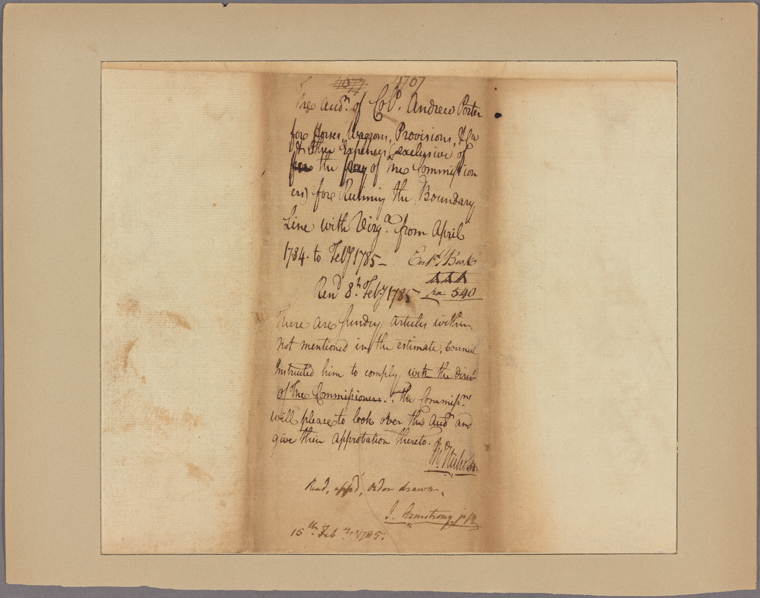 4707
The Accᵗ. of Colº. Andrew Porter
for Horses, Waggons, Provisions,
& other Expences, exclusive of
the pay of the Commission
ers) for Runing the Boundary
Line with Virgª. from April
1784. to Febʸ 1785 —
Book
Rend 8ᵗʰ Febʸ 1785 — pa 340
There are sundry articles within
not mentioned in the estimate; Council
Instructed him to comply with the direcⁿˢ
of the Commissioners. The Commissⁿʳˢ
will please to look over the Accᵗ and
give their approbation thereto.
Read, appd, order drawn.
J. Armstrong jr
15ᵗʰ Feb. 1785.